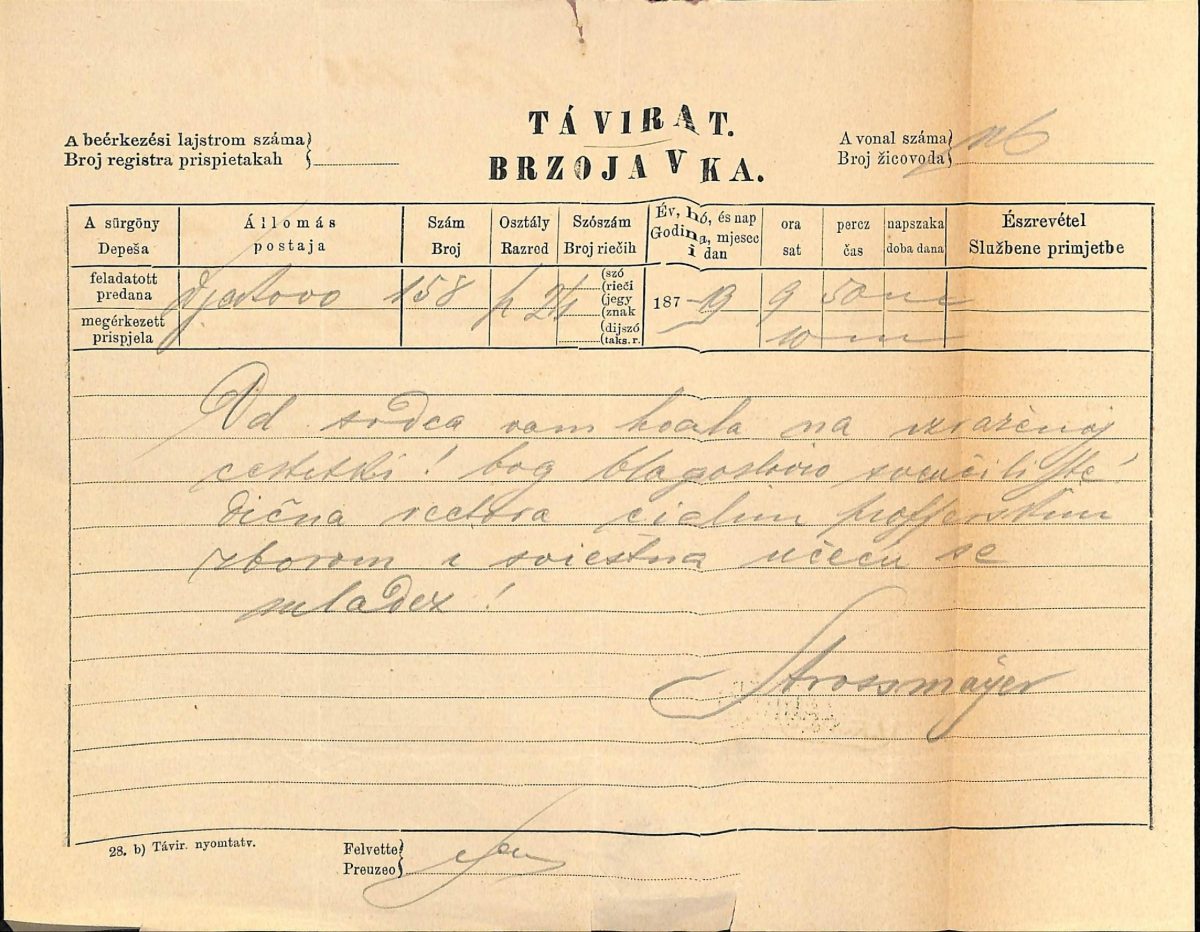 TÁVIRAT.
BRZOJAVKA.
A beérkezési lajstrom száma
Broj registra prispietakah
A vonal száma
Broj žicovoda
A sürgöny Állomás Szám Osztály Szószám Év, hó, és nap ora percz napszaka Észrevétel
Depeša postaja Broj Razred Broj riečih Godina, mjesec i dan sat čas doba dana Službene primjetbe
feladatott
predana
Djakovo 158 24 szó
rieči
jegy
znak
187 19 9 50 m
megérkezett
prispjela
dijszó
taks. r.
10 m
Od srdca vam hvala na izraženoj
cestitki! bog blagoslovio sveučilište!
dična rectora cielim profferskim
zborom i sviestna učecu se
mladex!
Strossmayer
28. b) Távir. nyomtatv.
Felvette
Preuzeo